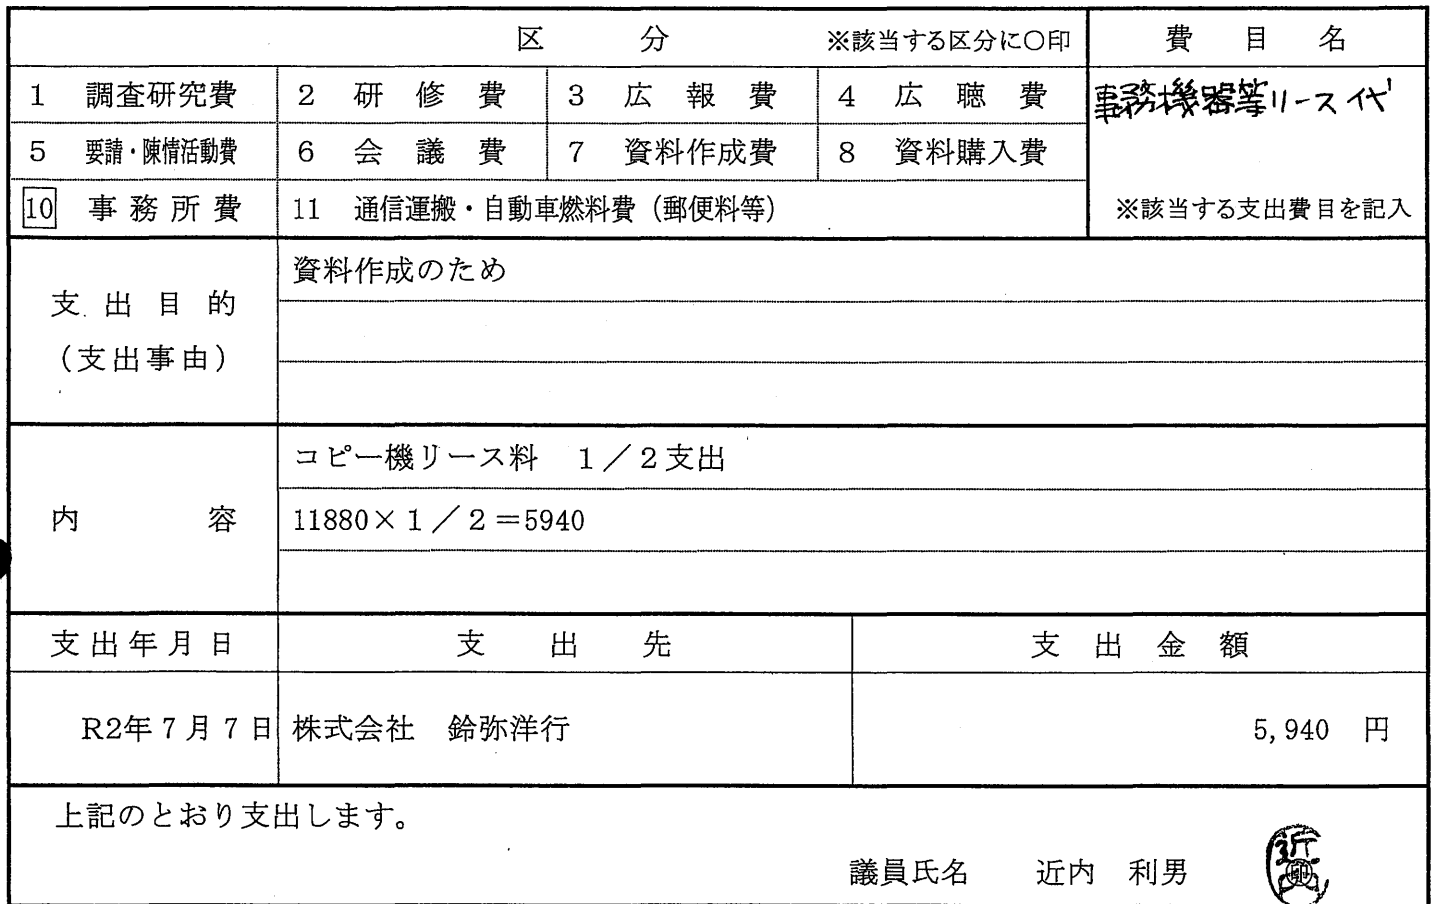 区 分 ※該当する区分に○印 費 目 名
1 調査研究費 2 研 修 費 3 広 報 費 4 広 聴 費 事務機器等リース代
5 要請・陳情活動費 6 会 議 費 7 資料作成費 8 資料購入費
10 事 務 所 費 11 通信運搬・自動車燃料費（郵便料等） ※該当する支出費目を記入
資料作成のため
支 出 目 的
（支出事由）
コピー機リース料 1／2支出
内 容 11880×1／2＝5940
支出年月日 支 出 先 支 出 金 額
R2年7月7日 株式会社 鈴弥洋行 5,940 円
上記のとおり支出します。
議員氏名 近内 利男 印